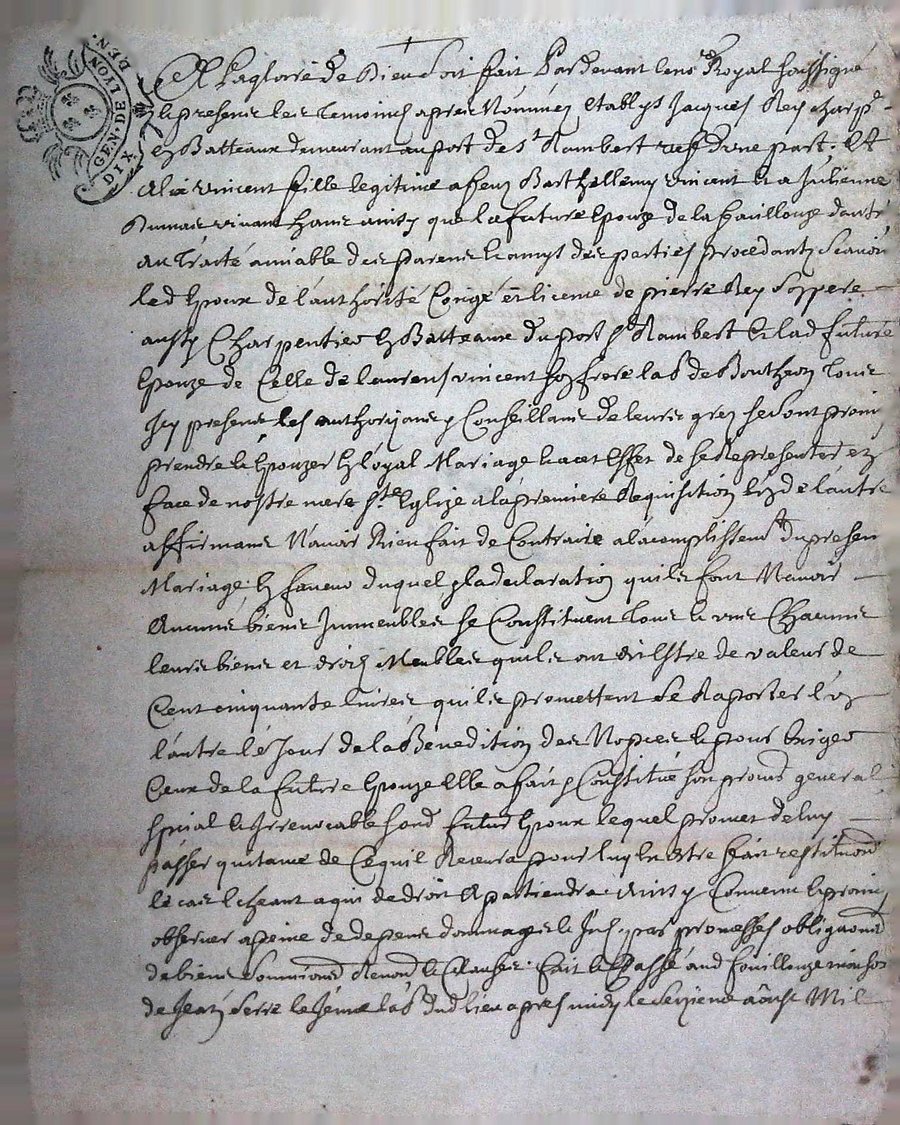 GEN·DE LYON
DIX DEN.
A La gloire de Dieu soit fait Pardevant le no.re Royal soussigné
& presens les temoins apres Nommez Etablys Jacques Rey charp.r
en Batteaux demeurant au port de s.t Rambert resp. d'une part. Et
Alix vincent fille legitime a feu Barthellemy vincent et a Julienne
Dumas vivant hanis ainsy que la future Epouze de la fouillouze dautre
au traité amiable des parens & amys des parties procedants scavoir
led Epoux de l'authorité Congé et licence de pierre Rey son pere
aussy Charpentier en Batteaux du port s.t Rambert et lad future
Epouze de Celle de Laurens vincent son frere lab de Bontheon tous
Icy presens les authorizans & Conseillans de leurs grez se sont promis
prendre & Epouzer en loyal Mariage & a cet Effet de se Representer en
face de nostre mere s.te Eglize a la premiere Requisition l'un de l'autre
affirmans N'avoir Rien fait de Contraire a l'acomplissem.t du presen
Mariage; en faveur duquel & la declaration quils font N'avoir
Aucuns biens Immeubles se Constituent tous & uns Chacuns
leurs biens et droits Meubles quils ont dit estre de valeur de
Cent cinquante livres quils promettent se Raporter l'un
l'autre le Jour de la Bénédition des Nopces & pour Exiger
Ceux de la future Epouze Elle a fait & Constitué son procur general
special & Irrevocable sond futur Epoux lequel promet de luy
passer quitance de Ce quil Recevra pour luy En estre fait restitu.on
le cas Echeant a qui de droit Apartiendra: Ainsy Convenu & promis
observer a peine de depens dommages & Int. par promesses obligaon
de biens soumissions Renon.d & Clauses. fait & Passé aud fouillouze maison
de Jean Serre le Jeune lab dud lieu apres midy le seizieme aoust Mil